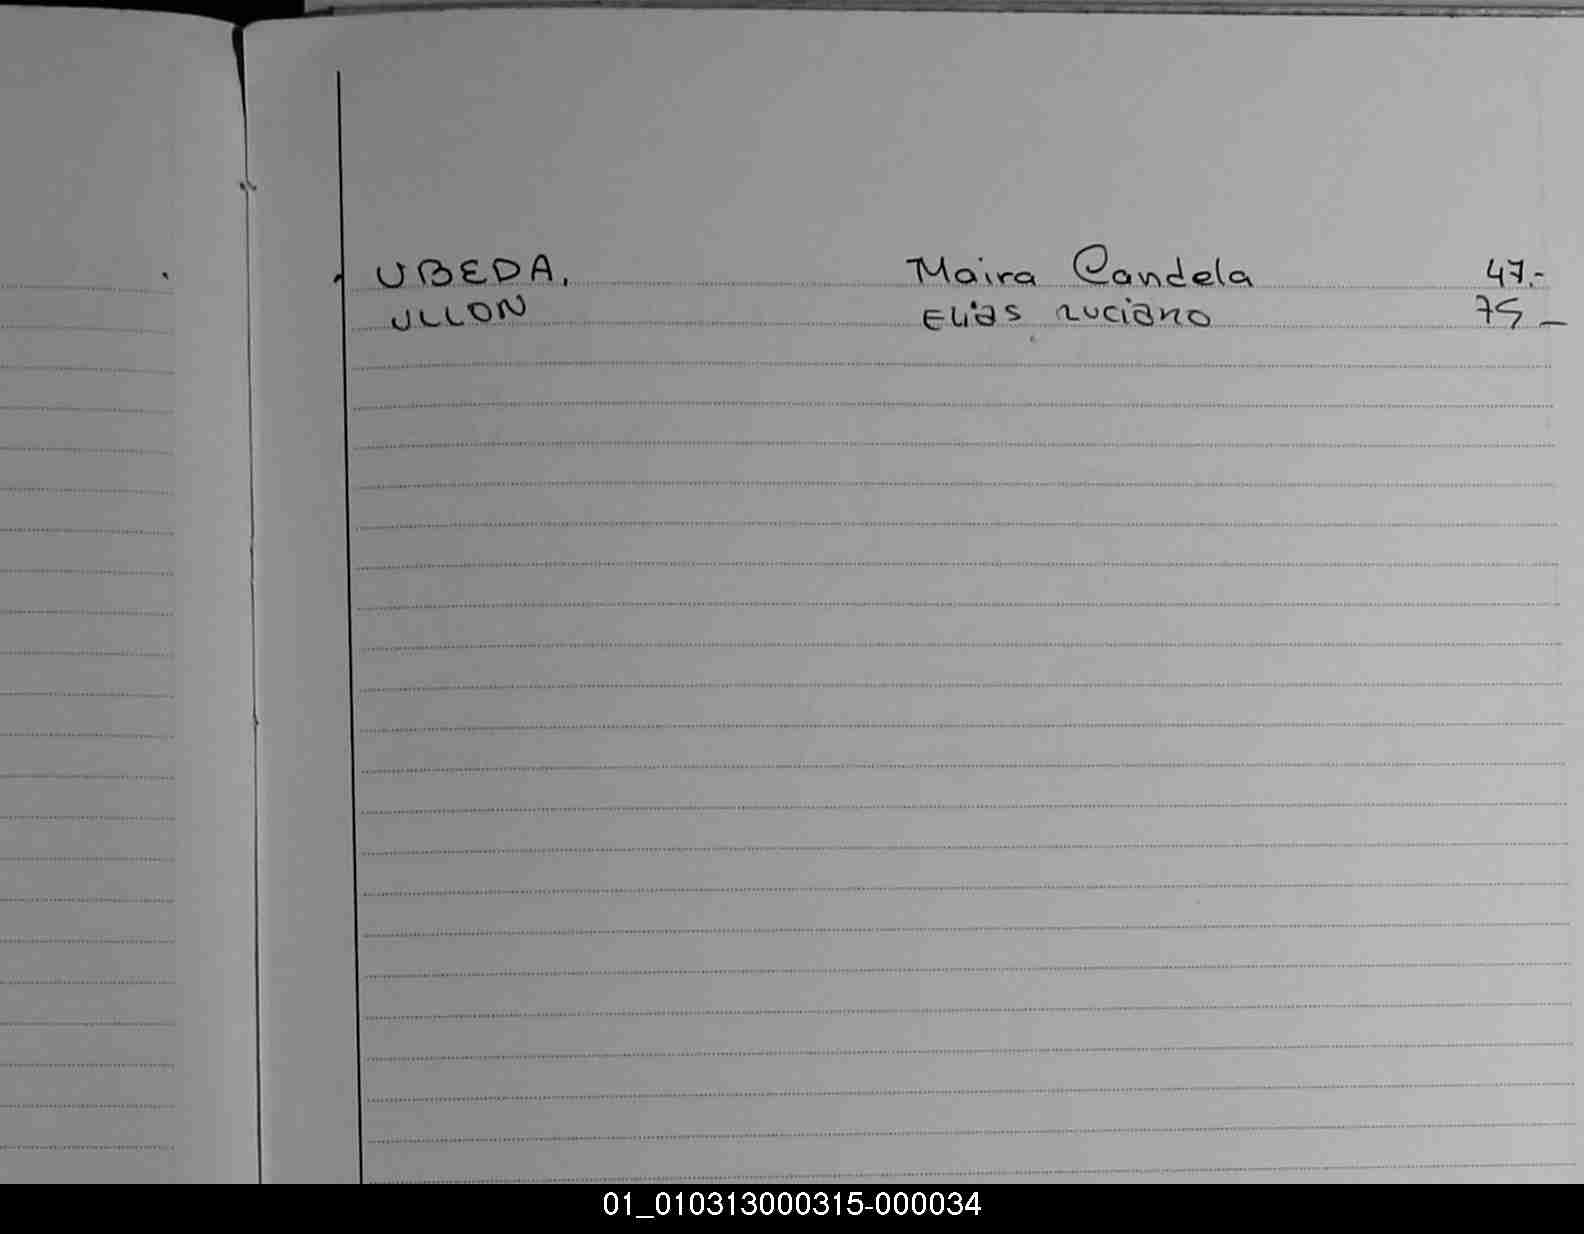 UBEDA. Maira Candela 47.-
ULLON Elias Luciano 75 -
01_010313000315-000034